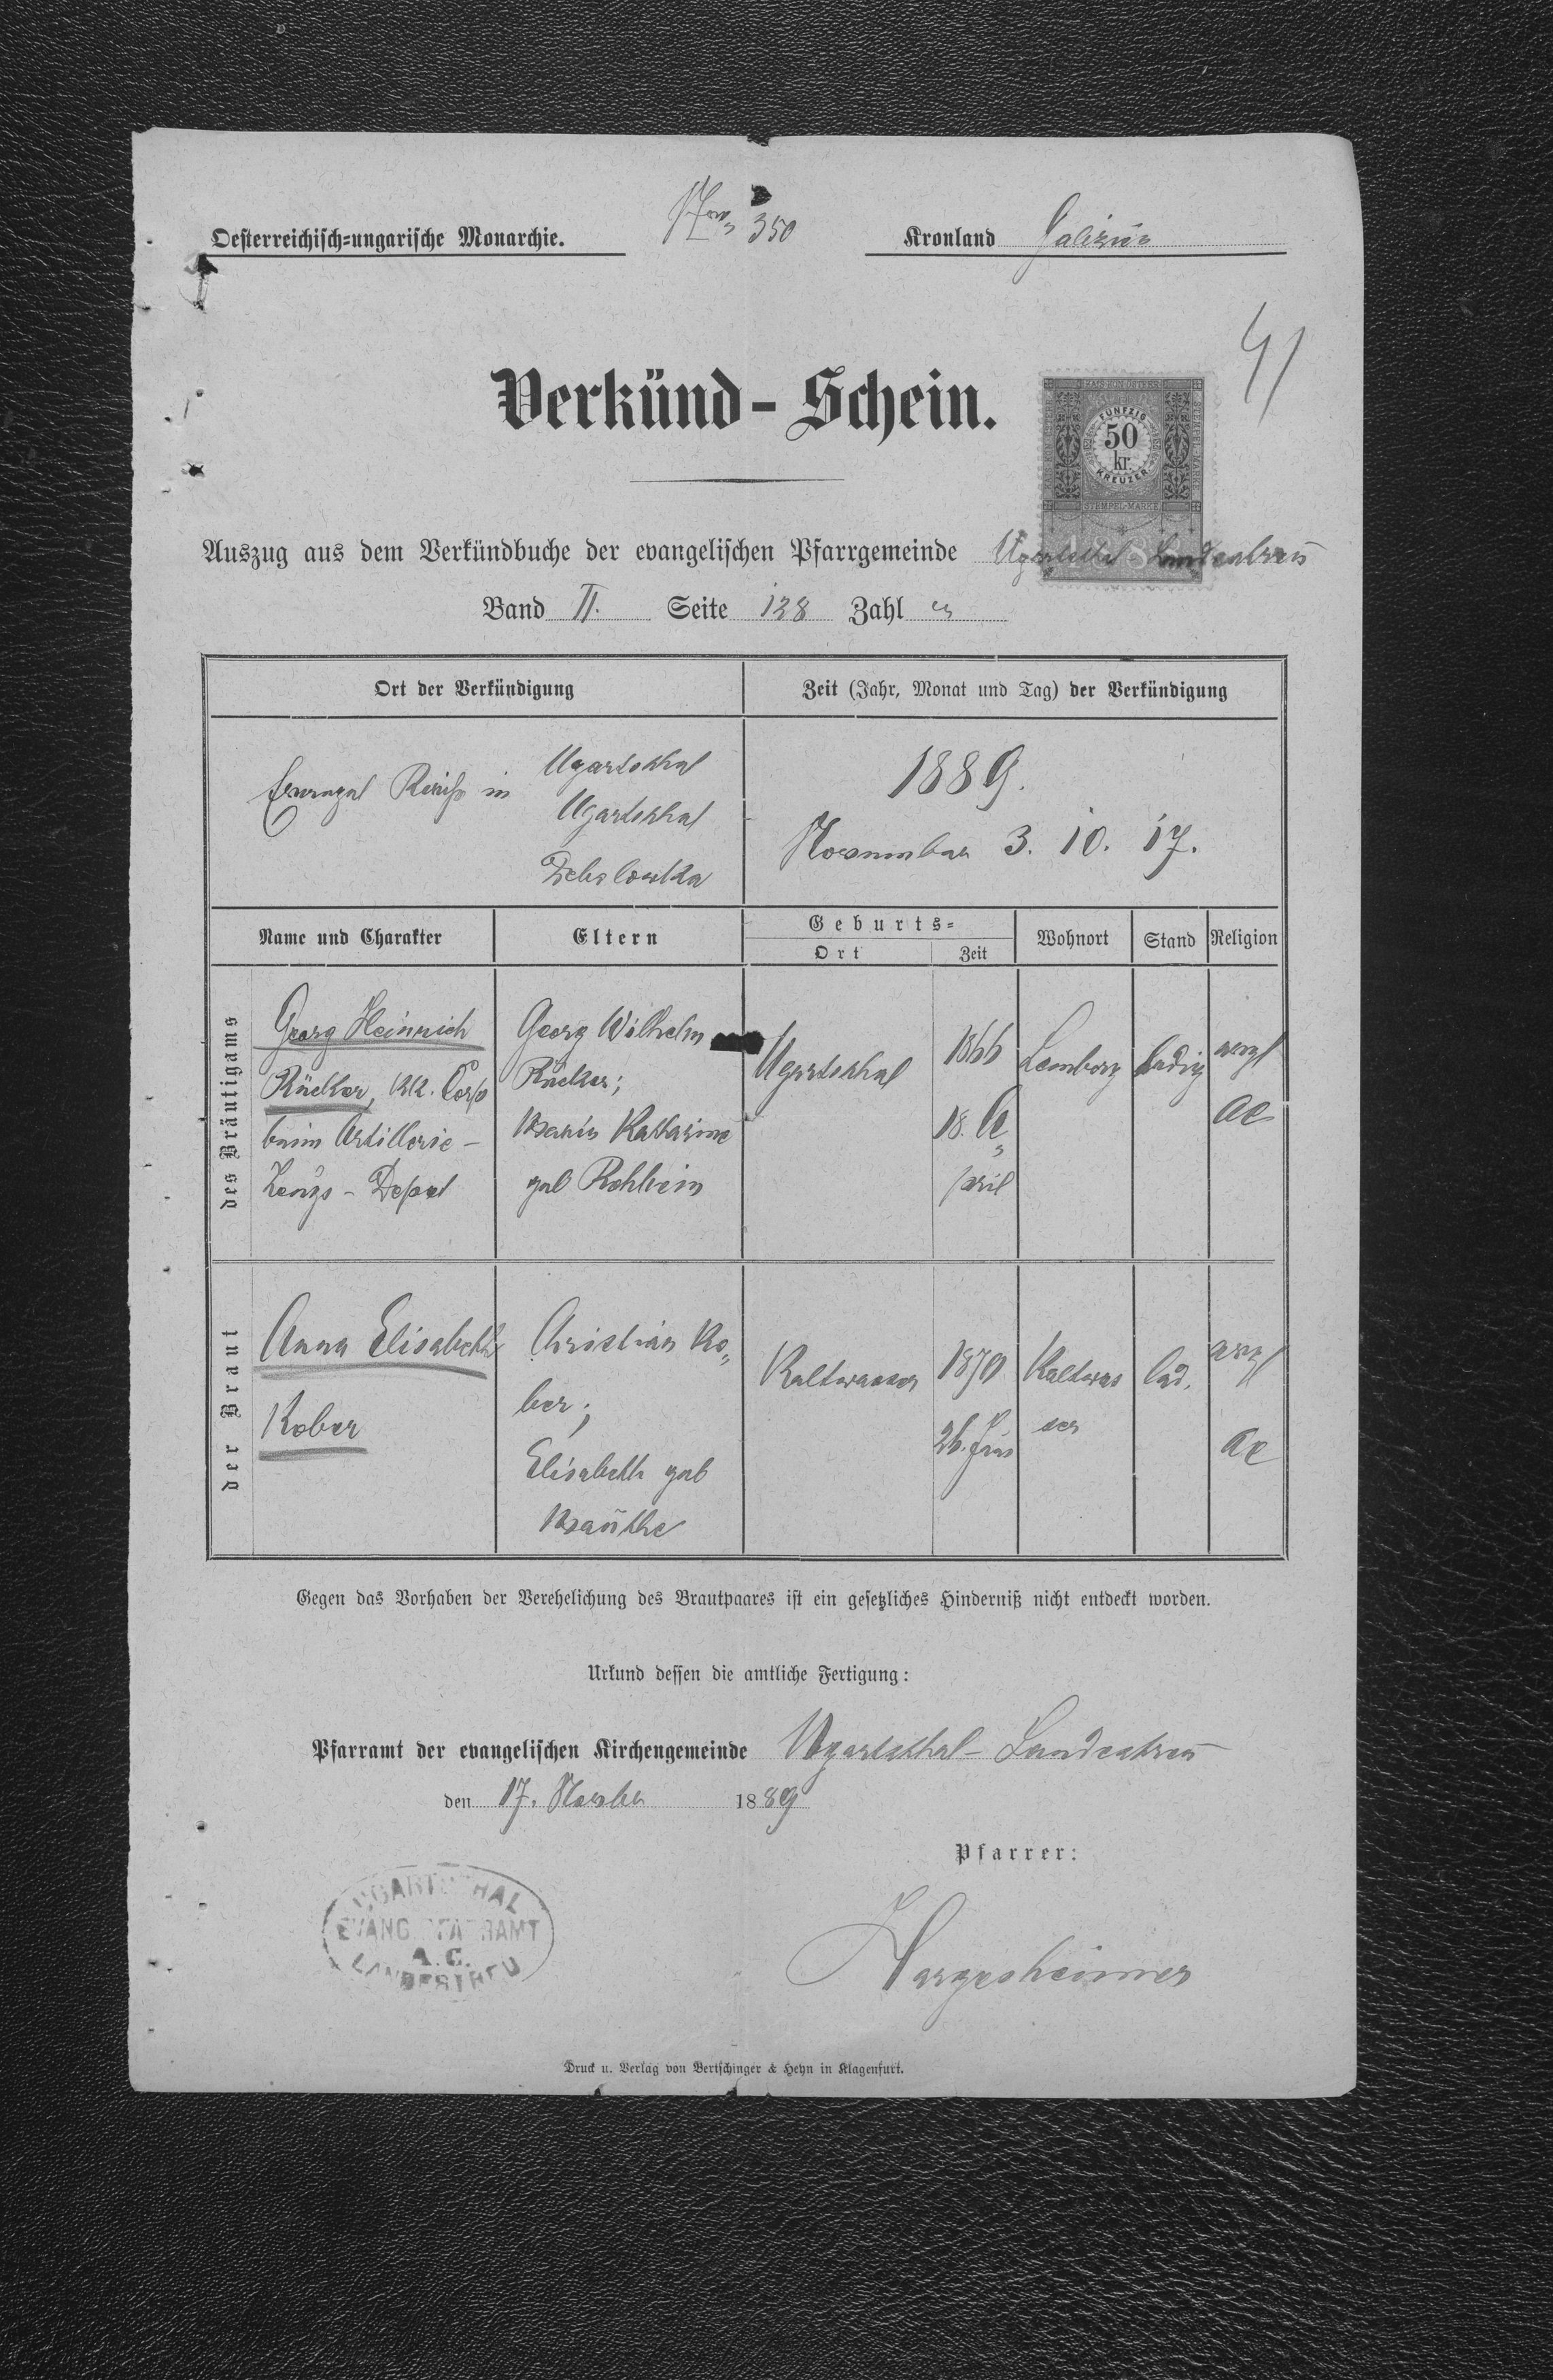 Oesterreichisch=ungarische Monarchie.
350
Kronland Galizien
41
Verkünd-Schein.
KAIS. KÖN. ÖSTERR.
FÜNFZIG
50
kr.
KREUZER
STEMPEL-MARKE
Auszug aus dem Verkündbuche der evangelischen Pfarrgemeinde Ugartsthal-Landestreu
Band II. Seite 128 Zahl
Ort der Verkündigung
Zeit (Jahr, Monat und Tag) der Verkündigung
Evangel Kirche in
Ugartsthal
Ugartsthal
Debolowka
1889.
November 3. 10. 17.
Name und Charakter
Eltern
Geburts=
Ort
Zeit
Wohnort
Stand
Religion
des Bräutigams
Georg Heinrich
Rücker, kk. Corp
beim Artillerie-
Zeugs-Depot
Georg Wilhelm
Rücker;
Maria Katarina
geb Rohbein
Ugartsthal
1866
18. A„
pril
Lemberg
ledig
evgl
AC
der Braut
Anna Elisabeth
Kober
Christian Ko„
ber;
Elisabeth geb
Mauthe
Kaltwasser
1870
26.
Kaltwas
ser
led.
evgl
AC
Gegen das Vorhaben der Verehelichung des Brautpaares ist ein gesetzliches Hinderniß nicht entdeckt worden.
Urkund dessen die amtliche Fertigung:
Pfarramt der evangelischen Kirchengemeinde Ugartsthal-Landestreu
den 17. Novber 1889
Pfarrer:
UGARTSTHAL
EVANG. PFARRAMT
A. C.
LANDESTREU
Hargesheimer
Druck u. Verlag von Bertschinger & Heyn in Klagenfurt.